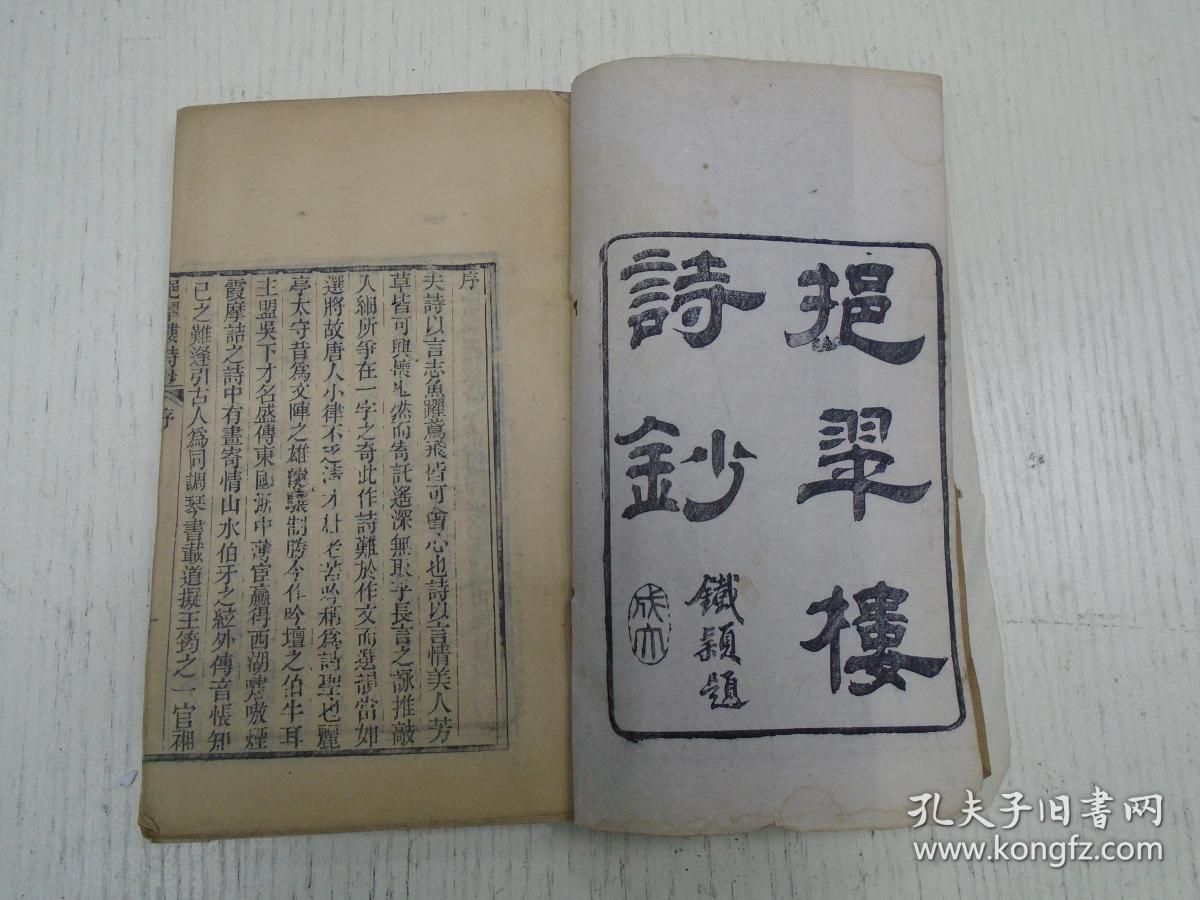 挹翠樓
詩鈔
鐵穎題
序
夫詩以言志魚躍鳶飛皆可會心也詩以言情美人芳
草皆可興懷也然而寄託遙深無取乎長言之詠推敲
入細所爭在一字之奇此作詩難於作文而選調當如
選將故唐人小律不乏清才杜老苦吟稱為詩聖也麗
亭太守昔為文陣之雄驍驤制勝今作吟壇之伯牛耳
主盟吳下才名盛傳東甌浙中薄宦贏得西湖嘯嗷煙
霞摩詰之詩中有畫寄情山水伯牙之絃外傳音悵知
己之難逢引古人為同調琴書載道擬王筠之一官裲
挹翠樓詩鈔 序
孔夫子旧书网
www.kongfz.com